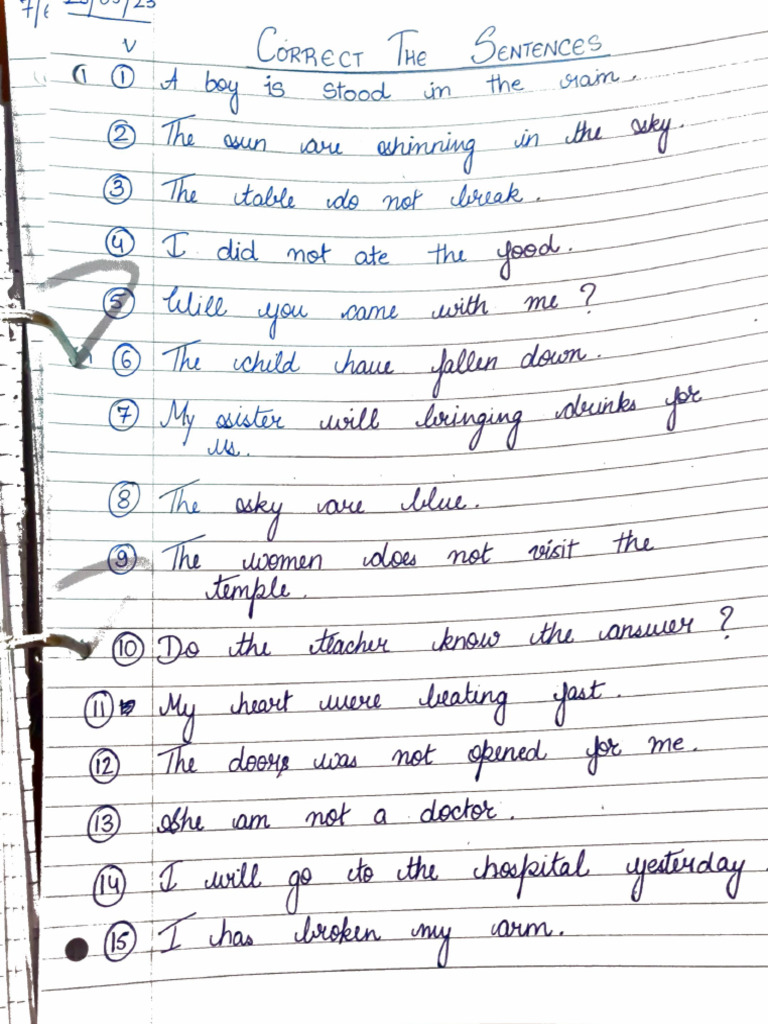 CORRECT THE SENTENCES
① A boy is stood in the rain.
② The sun are shinning in the sky.
③ The table do not break.
④ I did not ate the food.
⑤ Will you came with me ?
⑥ The child have fallen down.
⑦ My sister will bringing drinks for
us.
⑧ The sky are blue.
⑨ The women does not visit the
temple.
⑩ Do the teacher know the answer ?
⑪ My heart were beating fast.
⑫ The doors was not opened for me.
⑬ She am not a doctor.
⑭ I will go to the hospital yesterday
⑮ I has broken my arm.